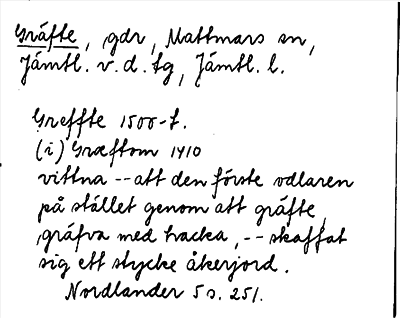 Gräfte, gdr, Mattmars sn,
Jämtl. v. d. tg, Jämtl. l.
Greffte 1500-t.
(i) Græftom 1410
vittna -- att den förste odlaren
på stället genom att gräfte,
gräfva med hacka, -- skaffat
sig ett stycke åkerjord.
Nordlander 5 s. 251.